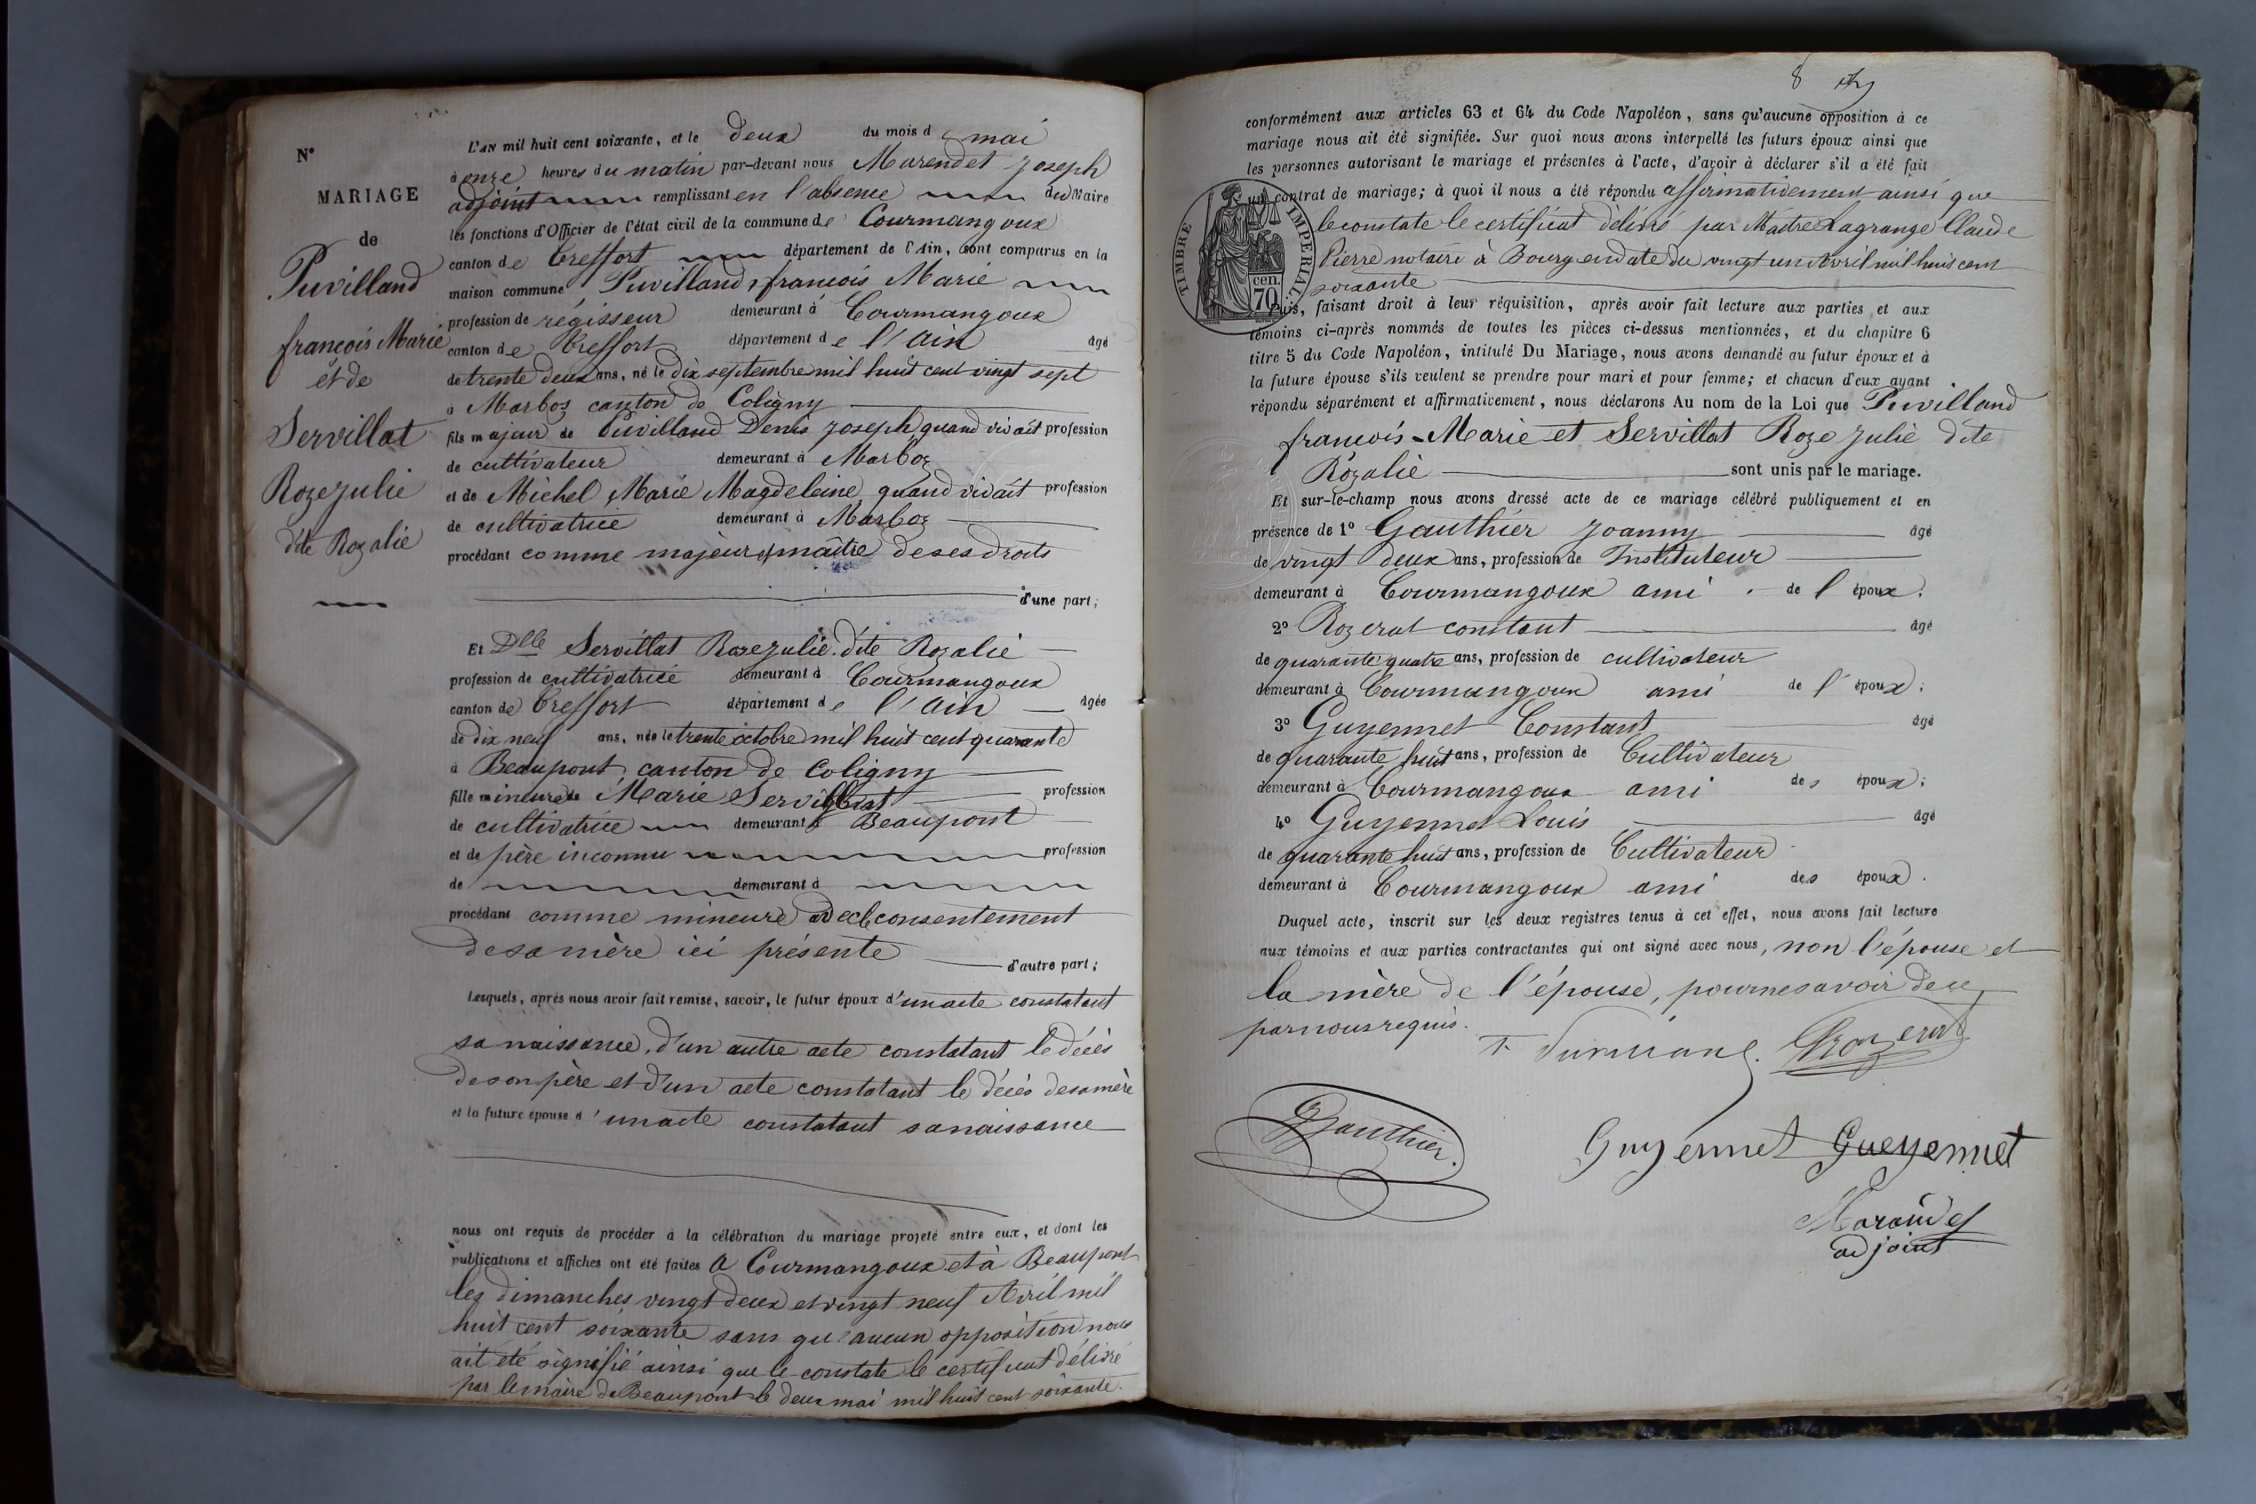 N°
MARIAGE
de
Puvilland
françois Marie
et de
Servillat
Roze Julie
dite Rozalie
L'AN mil huit cent soixante, et le deux du mois de mai
à onze heures du matin par-devant nous Marendet Joseph
adjoint remplissant en l'absence du Maire
les fonctions d'Officier de l'état civil de la commune de Courmangoux
canton de Treffort département de l'Ain, sont comparus en la
maison commune Puvilland, françois Marie
profession de régisseur demeurant à Courmangoux
canton de Treffort département de l'Ain âgé
de trente deux ans, né le dix septembre mil huit cent vingt sept
à Marboz canton de Coligny
fils majeur de Puvilland Denis Joseph quand vivait profession
de cultivateur demeurant à Marboz
et de Michel Marie Magdeleine quand vivait profession
de cultivatrice demeurant à Marboz
procédant comme majeur et maître de ses droits
d'une part;
Et Dlle Servillat Roze Julie dite Rozalie
profession de cultivatrice demeurant à Courmangoux
canton de Treffort département de l'Ain âgée
de dix neuf ans, née le trente octobre mil huit cent quarante
à Beaupont, canton de Coligny
fille mineure de Marie Servillat profession
de cultivatrice demeurant à Beaupont
et de père inconnu profession
de demeurant à
procédant comme mineure avec le consentement
de sa mère ici présente
d'autre part;
Lesquels, après nous avoir fait remise, savoir, le futur époux d'un acte constatant
sa naissance, d'un autre acte constatant le décès
de son père et d'un acte constatant le décès de sa mère
et la future épouse d'un acte constatant sa naissance
nous ont requis de procéder à la célébration du mariage projeté entre eux, et dont les
publications et affiches ont été faites à Courmangoux et à Beaupont
les dimanches vingt deux et vingt neuf Avril mil
huit cent soixante sans qu'aucun opposition nous
ait été signifié ainsi que le constate le certificat délivré
par le maire de Beaupont le deux mai mil huit cent soixante.
8
conformément aux articles 63 et 64 du Code Napoléon, sans qu'aucune opposition à ce
mariage nous ait été signifiée. Sur quoi nous avons interpellé les futurs époux ainsi que
les personnes autorisant le mariage et présentes à l'acte, d'avoir à déclarer s'il a été fait
un contrat de mariage; à quoi il nous a été répondu affirmativement ainsi que
le constate le certificat délivré par Maître Lagrange Claude
Pierre notaire à Bourg en date du vingt un Avril mil huit cent
soixante
TIMBRE IMPERIAL
70 cen.
Puis, faisant droit à leur réquisition, après avoir fait lecture aux parties et aux
témoins ci-après nommés de toutes les pièces ci-dessus mentionnées, et du chapitre 6
titre 5 du Code Napoléon, intitulé Du Mariage, nous avons demandé au futur époux et à
la future épouse s'ils veulent se prendre pour mari et pour femme; et chacun d'eux ayant
répondu séparément et affirmativement, nous déclarons Au nom de la Loi que Puvilland
françois-Marie et Servillat Roze Julie dite
Rozalie sont unis par le mariage.
Et sur-le-champ nous avons dressé acte de ce mariage célébré publiquement et en
présence de 1° Gauthier Joanny âgé
de vingt deux ans, profession de Instituteur
demeurant à Courmangoux ami de l'époux;
2° Rozerat constant âgé
de quarante quatre ans, profession de cultivateur
demeurant à Courmangoux ami de l'époux;
3° Guyennet Constant âgé
de quarante huit ans, profession de Cultivateur
demeurant à Courmangoux ami des époux;
4° Guyennet Louis âgé
de quarante huit ans, profession de Cultivateur
demeurant à Courmangoux ami des époux.
Duquel acte, inscrit sur les deux registres tenus à cet effet, nous avons fait lecture
aux témoins et aux parties contractantes qui ont signé avec nous, non l'épouse et
la mère de l'épouse, pour ne savoir de ce
par nous requis.
Rozerat
Gauthier
Guyennet Gueyennet
Marandet
adjoint